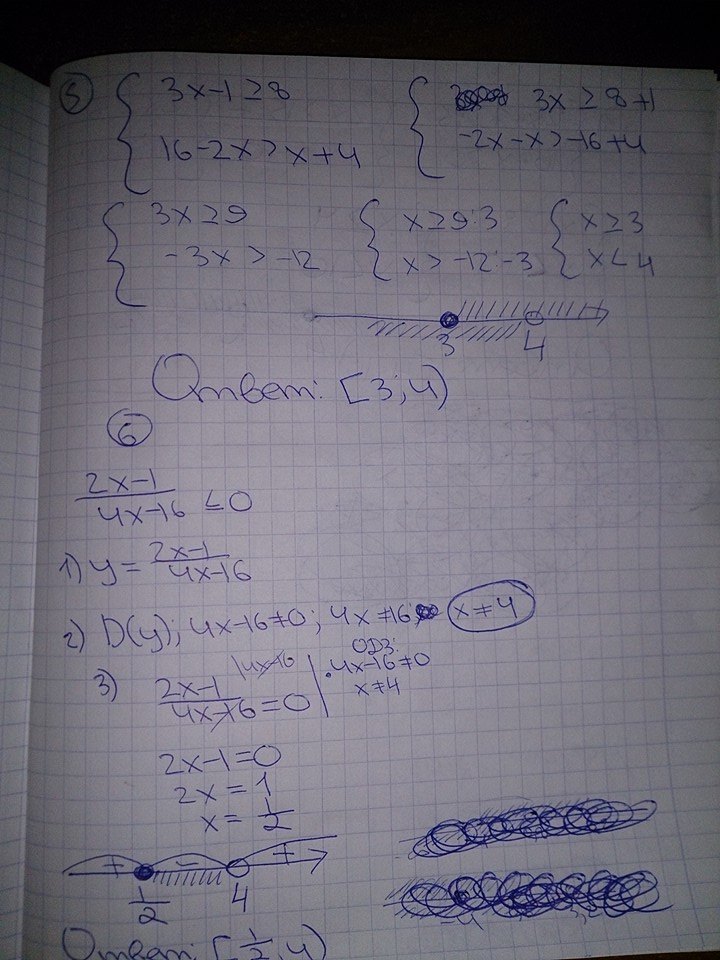 5
{ 3x-1≥8
16-2x>x+4
{ 3x≥8+1
-2x-x>-16+4
{ 3x≥9
-3x>-12
{ x≥9:3
x>-12:-3
{ x≥3
x<4
3 4
Ответ: [3;4)
6
(2x-1)/(4x-16) ≤0
1) y=(2x-1)/(4x-16)
2) D(y); 4x-16≠0; 4x≠16; x≠4
3) (2x-1)/(4x-16)=0 |4x-16
ОДЗ:
4x-16≠0
x≠4
2x-1=0
2x=1
x=1/2
+ - +
1/2 4
Ответ: [1/2;4)